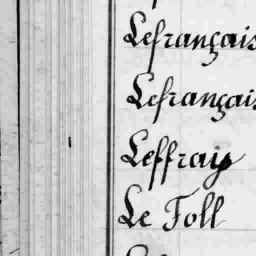 Lefrançais
Lefrançais
Leffray
Le Foll